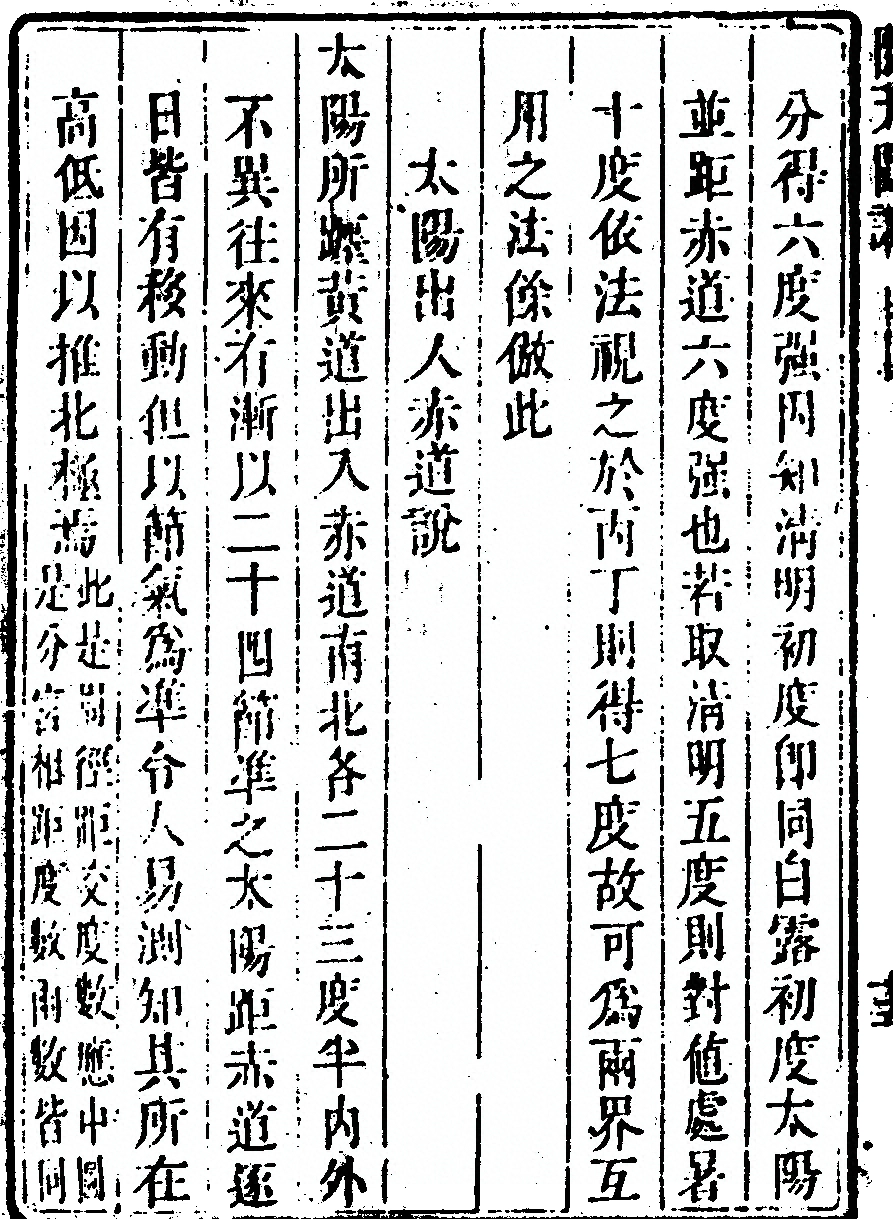 分得六度强因知清明初度卽同白露初度太陽
並距赤道六度强也若取清明五度則對値處暑
十度依法視之於丙丁則得七度故可爲兩界互
用之法餘倣此
太陽出入赤道說
太陽所躔黃道出入赤道南北各二十三度半內外
不異往來有漸以二十四節準之太陽距赤道逐
日皆有移動但以節氣爲準令人易測知其所在
高低因以推北極焉
此是過徑距交度數應中圖
是分宮相距度數兩數皆同